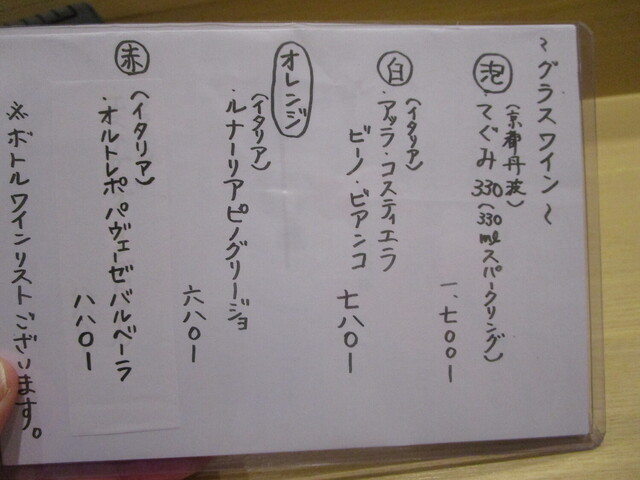 ～グラスワイン～
泡
(京都丹波)
・てぐみ330(330mlスパークリング)
一、七00ー
白
(イタリア)
・アッラ・コスティエラ
ビーノ・ビアンコ
七八0ー
オレンジ
(イタリア)
・ルナーリアピノグリージョ
六八0ー
赤
(イタリア)
・オルトレポパヴェーゼバルベーラ
八八0ー
※ボトルワインリストございます。